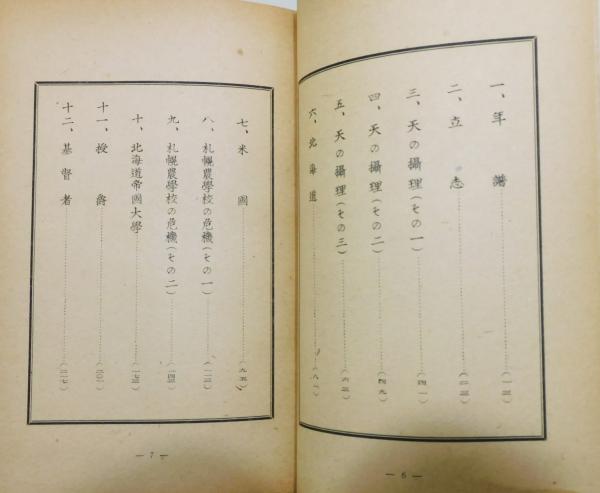 一、年譜……(一三)
二、立志……(二三)
三、天の攝理(その一)……(四一)
四、天の攝理(その二)……(四九)
五、天の攝理(その三)……(六三)
六、北海道……(八一)
— 6 —
七、米國……(九五)
八、札幌農學校の危機(その一)……(一二三)
九、札幌農學校の危機(その二)……(一四三)
十、北海道帝國大學……(一七三)
十一、授爵……(二〇三)
十二、基督者……(二一七)
— 7 —